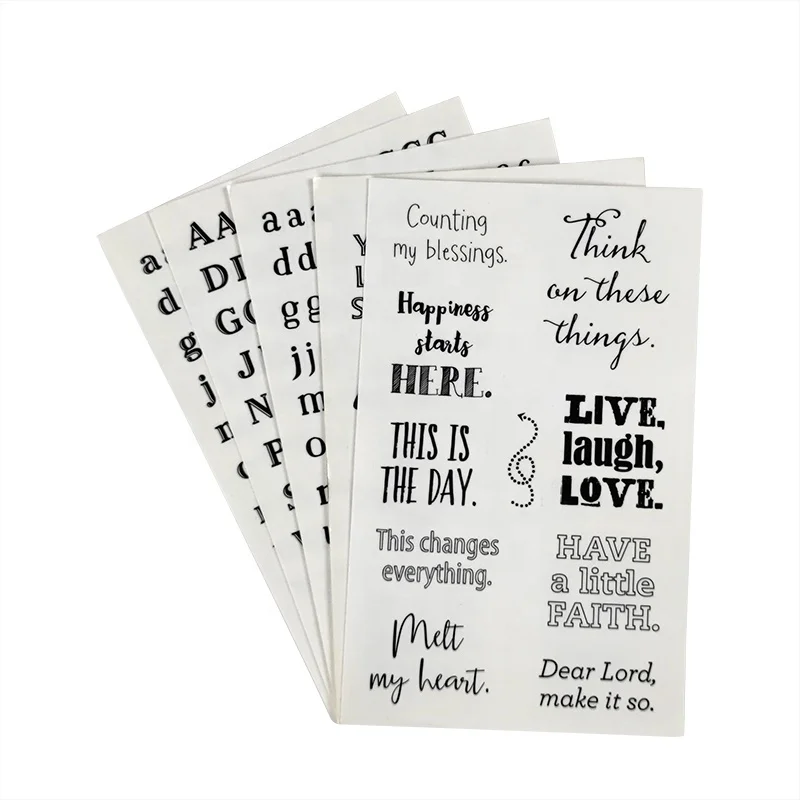 Counting
my blessings.
Happiness
starts
HERE.
THIS IS
THE DAY.
This changes
everything.
Melt
my heart.
Think
on these
things.
LIVE,
laugh,
LOVE.
HAVE
a little
FAITH.
Dear Lord,
make it so.
Y
L
S
aaa
dd
gg
jj
m
o
AA
D
G
J
N
P
a
d
g
j